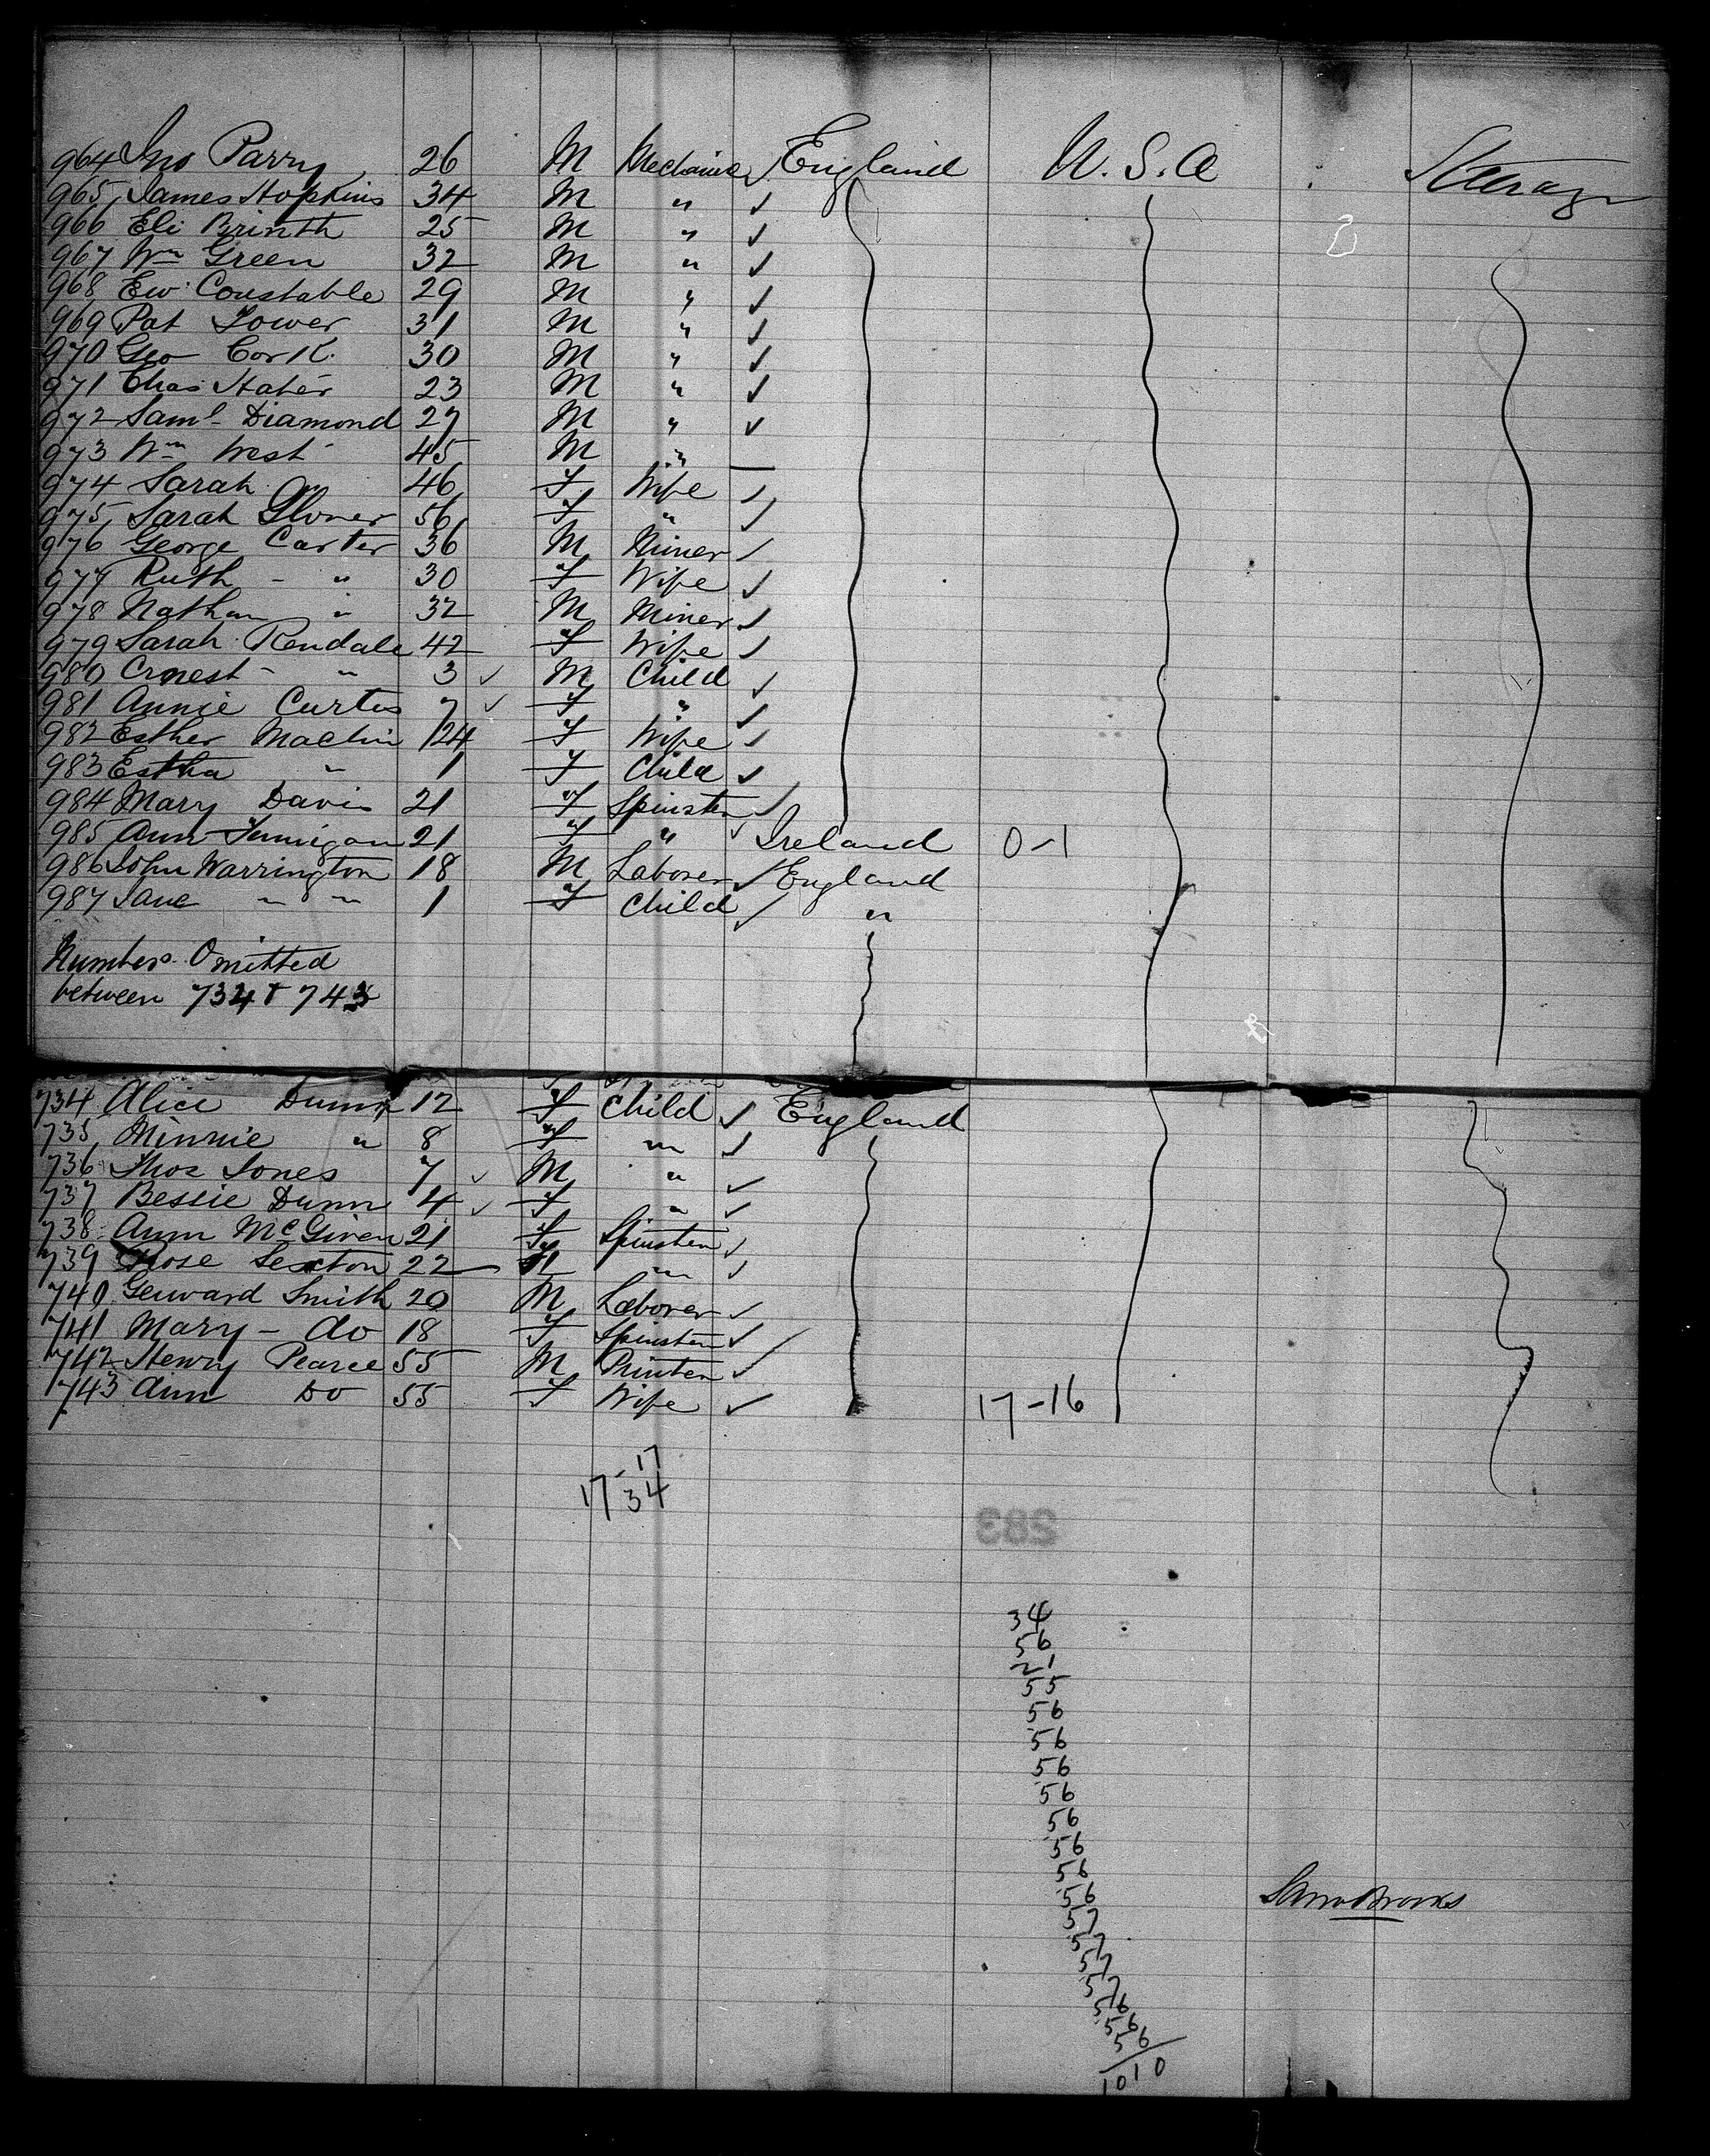 964 Jno Parry 26 M Mechanic ✓ England U.S.A Steerage
965 James Hopkins 34 M " ✓
966 Eli Brinth 25 M " ✓
967 Wm Green 32 M " ✓
968 Ew. Constable 29 M " ✓
969 Pat Tower 31 M " ✓
970 Geo Cork. 30 M " ✓
971 Chas Hater 23 M " ✓
972 Saml Diamond 27 M " ✓
973 Wm West 45 M "
974 Sarah " 46 F Wife ✓
975 Sarah Glover 56 F " ✓
976 George Carter 36 M Miner ✓
977 Ruth - " 30 F Wife ✓
978 Nathan " 32 M Miner ✓
979 Sarah Rendale 42 F Wife ✓
980 Ernest - " 3 ✓ M Child ✓
981 Annie Curtis 7 ✓ F " ✓
982 Esther Machin 24 F Wife ✓
983 Estha " 1 F Child ✓
984 Mary Davis 21 F Spinster ✓
985 Ann Finnigan 21 F " ✓ Ireland 0-1
986 John Warrington 18 M Laborer ✓ England
987 Jane " " 1 F Child ✓ "
Numbers Omitted
between 734 & 743
734 Alice Dunn 12 F Child ✓ England
735 Minnie " 8 F " ✓
736 Thos Jones 7 ✓ M " ✓
737 Bessie Dunn 4 ✓ F " ✓
738 Ann McGiven 21 F Spinster ✓
739 Rose Sexton 22 " ✓
740 Gerward Smith 20 M Laborer ✓
741 Mary - do 18 F Spinster ✓
742 Henry Pearce 55 M Printer ✓
743 Ann Do 55 F Wife ✓ 17-16
17
17 34
283
34
56
21
55
56
56
56
56
56
56
56
56
57
57
57
57
56
56
56
1010